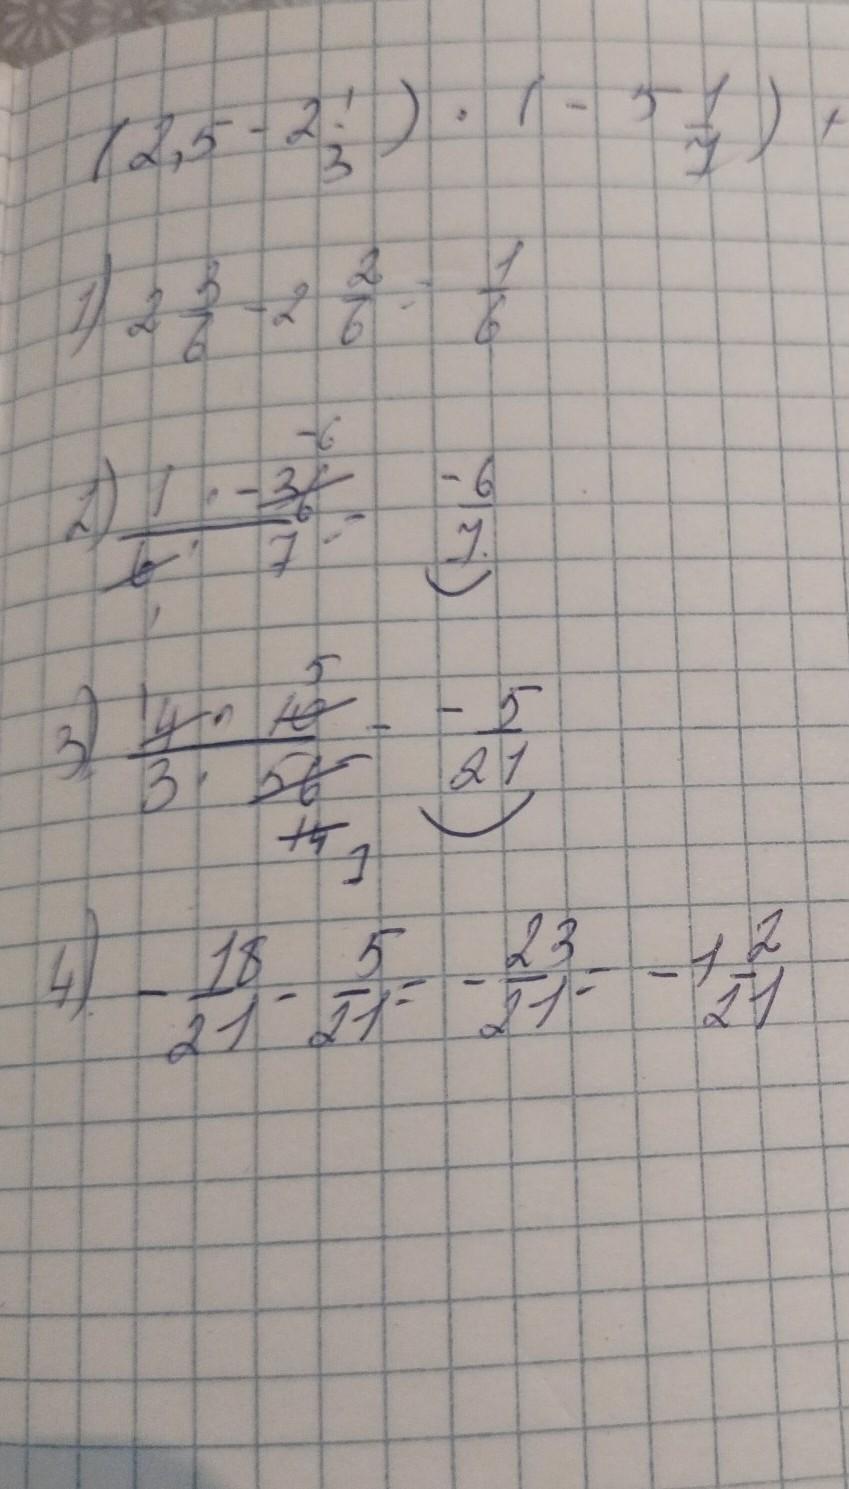 (2,5 - 2 1/3) · (- 5 1/7) +
1) 2 3/6 - 2 2/6 = 1/6
2) 1 · -36/6 · 7 = -6/7
3) 4 · 10/3 · 56 - - 5/21
4) - 18/21 - 5/21 = - 23/21 = - 1 2/21